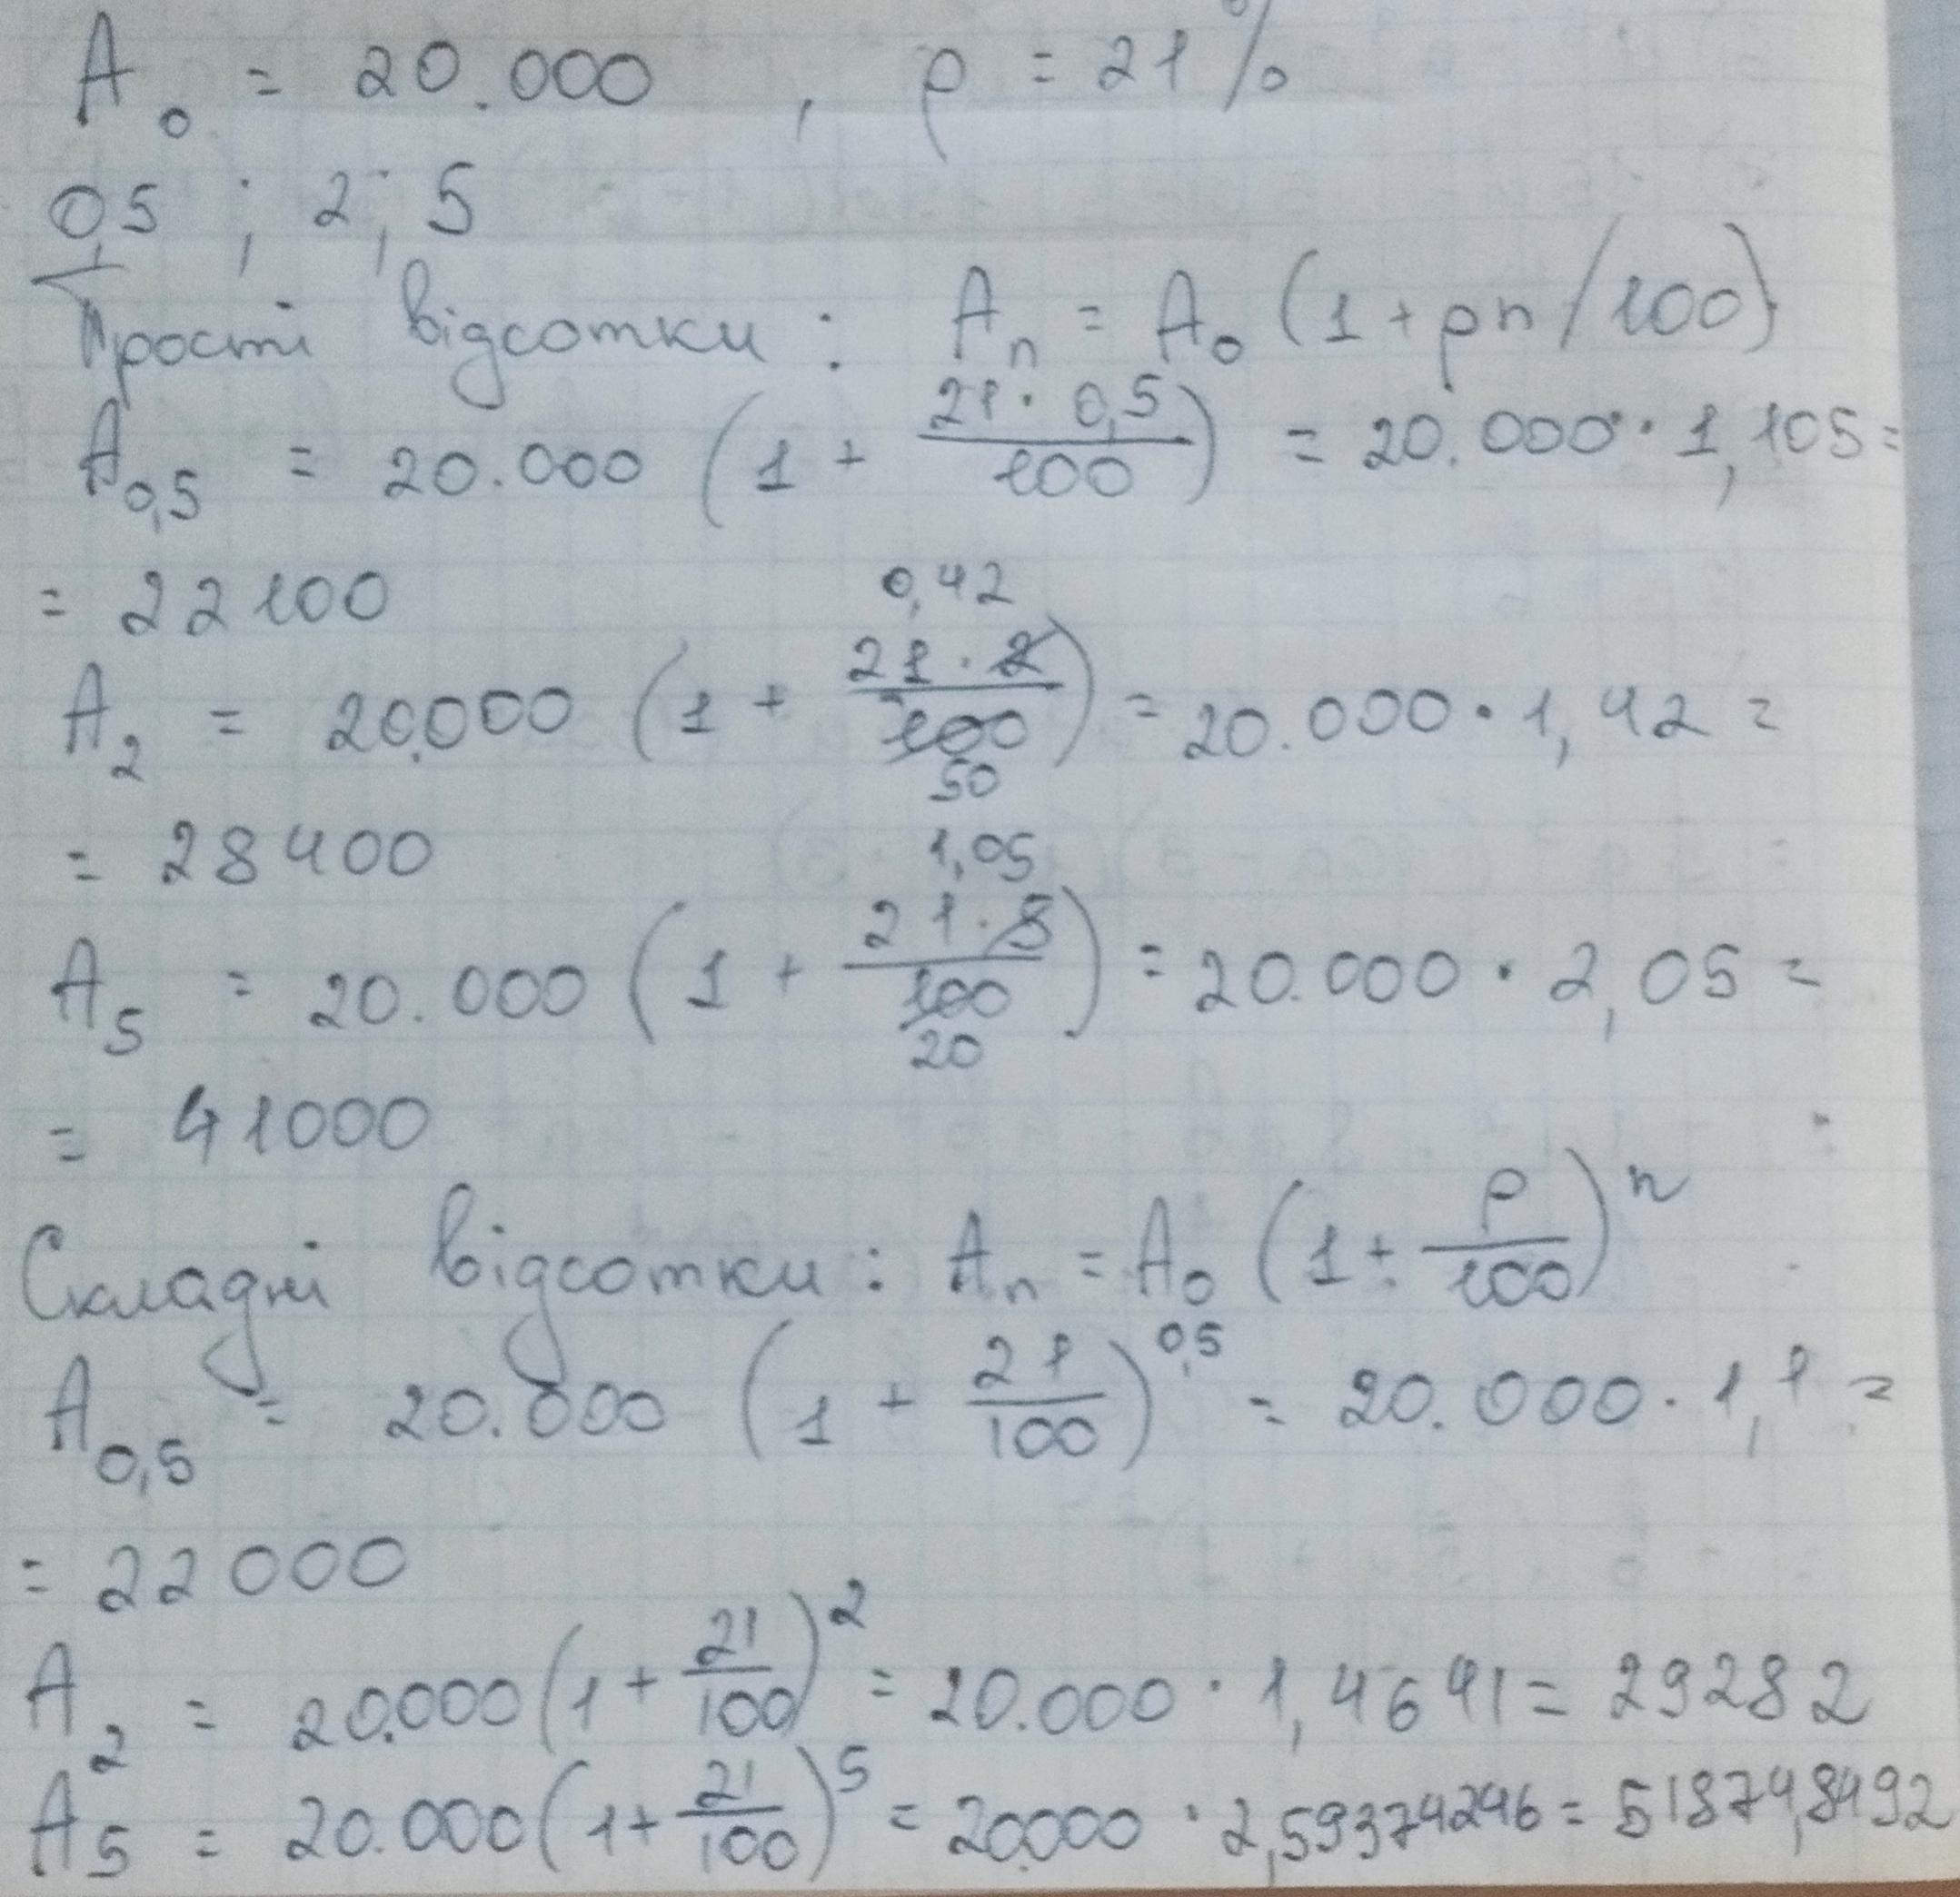 A₀ = 20.000 , p = 21%
0,5 ; 2 ; 5
Прості відсотки : Aₙ = A₀ (1 + pn/100)
A₀,₅ = 20.000 (1 + 21·0,5/100) = 20.000 · 1,105 =
= 22100
0,42
A₂ = 20.000 (1 + 21·2/100) = 20.000 · 1,42 =
50
= 28400
1,05
A₅ = 20.000 (1 + 21·5/100) = 20.000 · 2,05 =
20
= 41000
Складні відсотки : Aₙ = A₀ (1 + p/100)ⁿ
A₀,₅ = 20.000 (1 + 21/100)^0,5 = 20.000 · 1,1 =
= 22000
A₂ = 20.000 (1 + 21/100)² = 20.000 · 1,4641 = 29282
A₅ = 20.000 (1 + 21/100)⁵ = 20.000 · 2,59374246 = 51874,8492